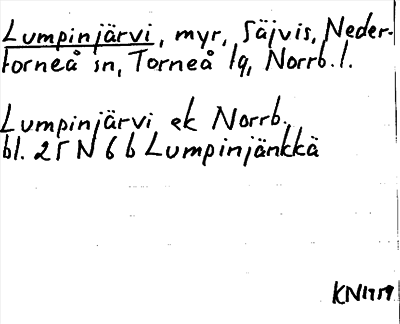 Lumpinjärvi, myr, Säjvis, Neder-
torneå sn, Torneå lg, Norrb. l.
Lumpinjärvi ek Norrb.
bl. 25 N 6 b Lumpinjänkkä